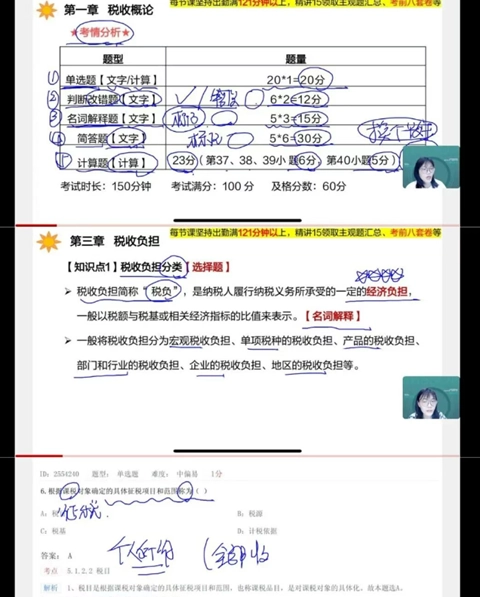 每节课坚持出勤满121分钟以上，精讲15领取主观题汇总、考前八套卷等
第一章 税收概论
★考情分析★
题型 题量
① 单选题【文字/计算】 20*1=20分
② 判断改错题【文字】 6*2=12分
③ 名词解释题【文字】 5*3=15分
简答题【文字】 5*6=30分
计算题【计算】 23分（第37、38、39小题6分，第40小题5分）
考试时长：150分钟 考试满分：100 分 及格分数：60分
每节课坚持出勤满121分钟以上，精讲15领取主观题汇总、考前八套卷等
第三章 税收负担
【知识点1】税收负担分类【选择题】
➢ 税收负担简称“税负”，是纳税人履行纳税义务所承受的一定的经济负担，
一般以税额与税基或相关经济指标的比值来表示。【名词解释】
➢ 一般将税收负担分为宏观税收负担、单项税种的税收负担、产品的税收负担、
部门和行业的税收负担、企业的税收负担、地区的税收负担等。
ID: 2554240 题型: 单选题 难度: 中偏易 1分
6.根据课税对象确定的具体征税项目和范围称为（ ）
A: 税 B: 税源
C: 税基 D: 计税依据
答案： A
考点 5.1.2.2 税目
解析 1、税目是根据课税对象确定的具体征税项目和范围，也称课税品目，是对课税对象的具体化。故本题选A。